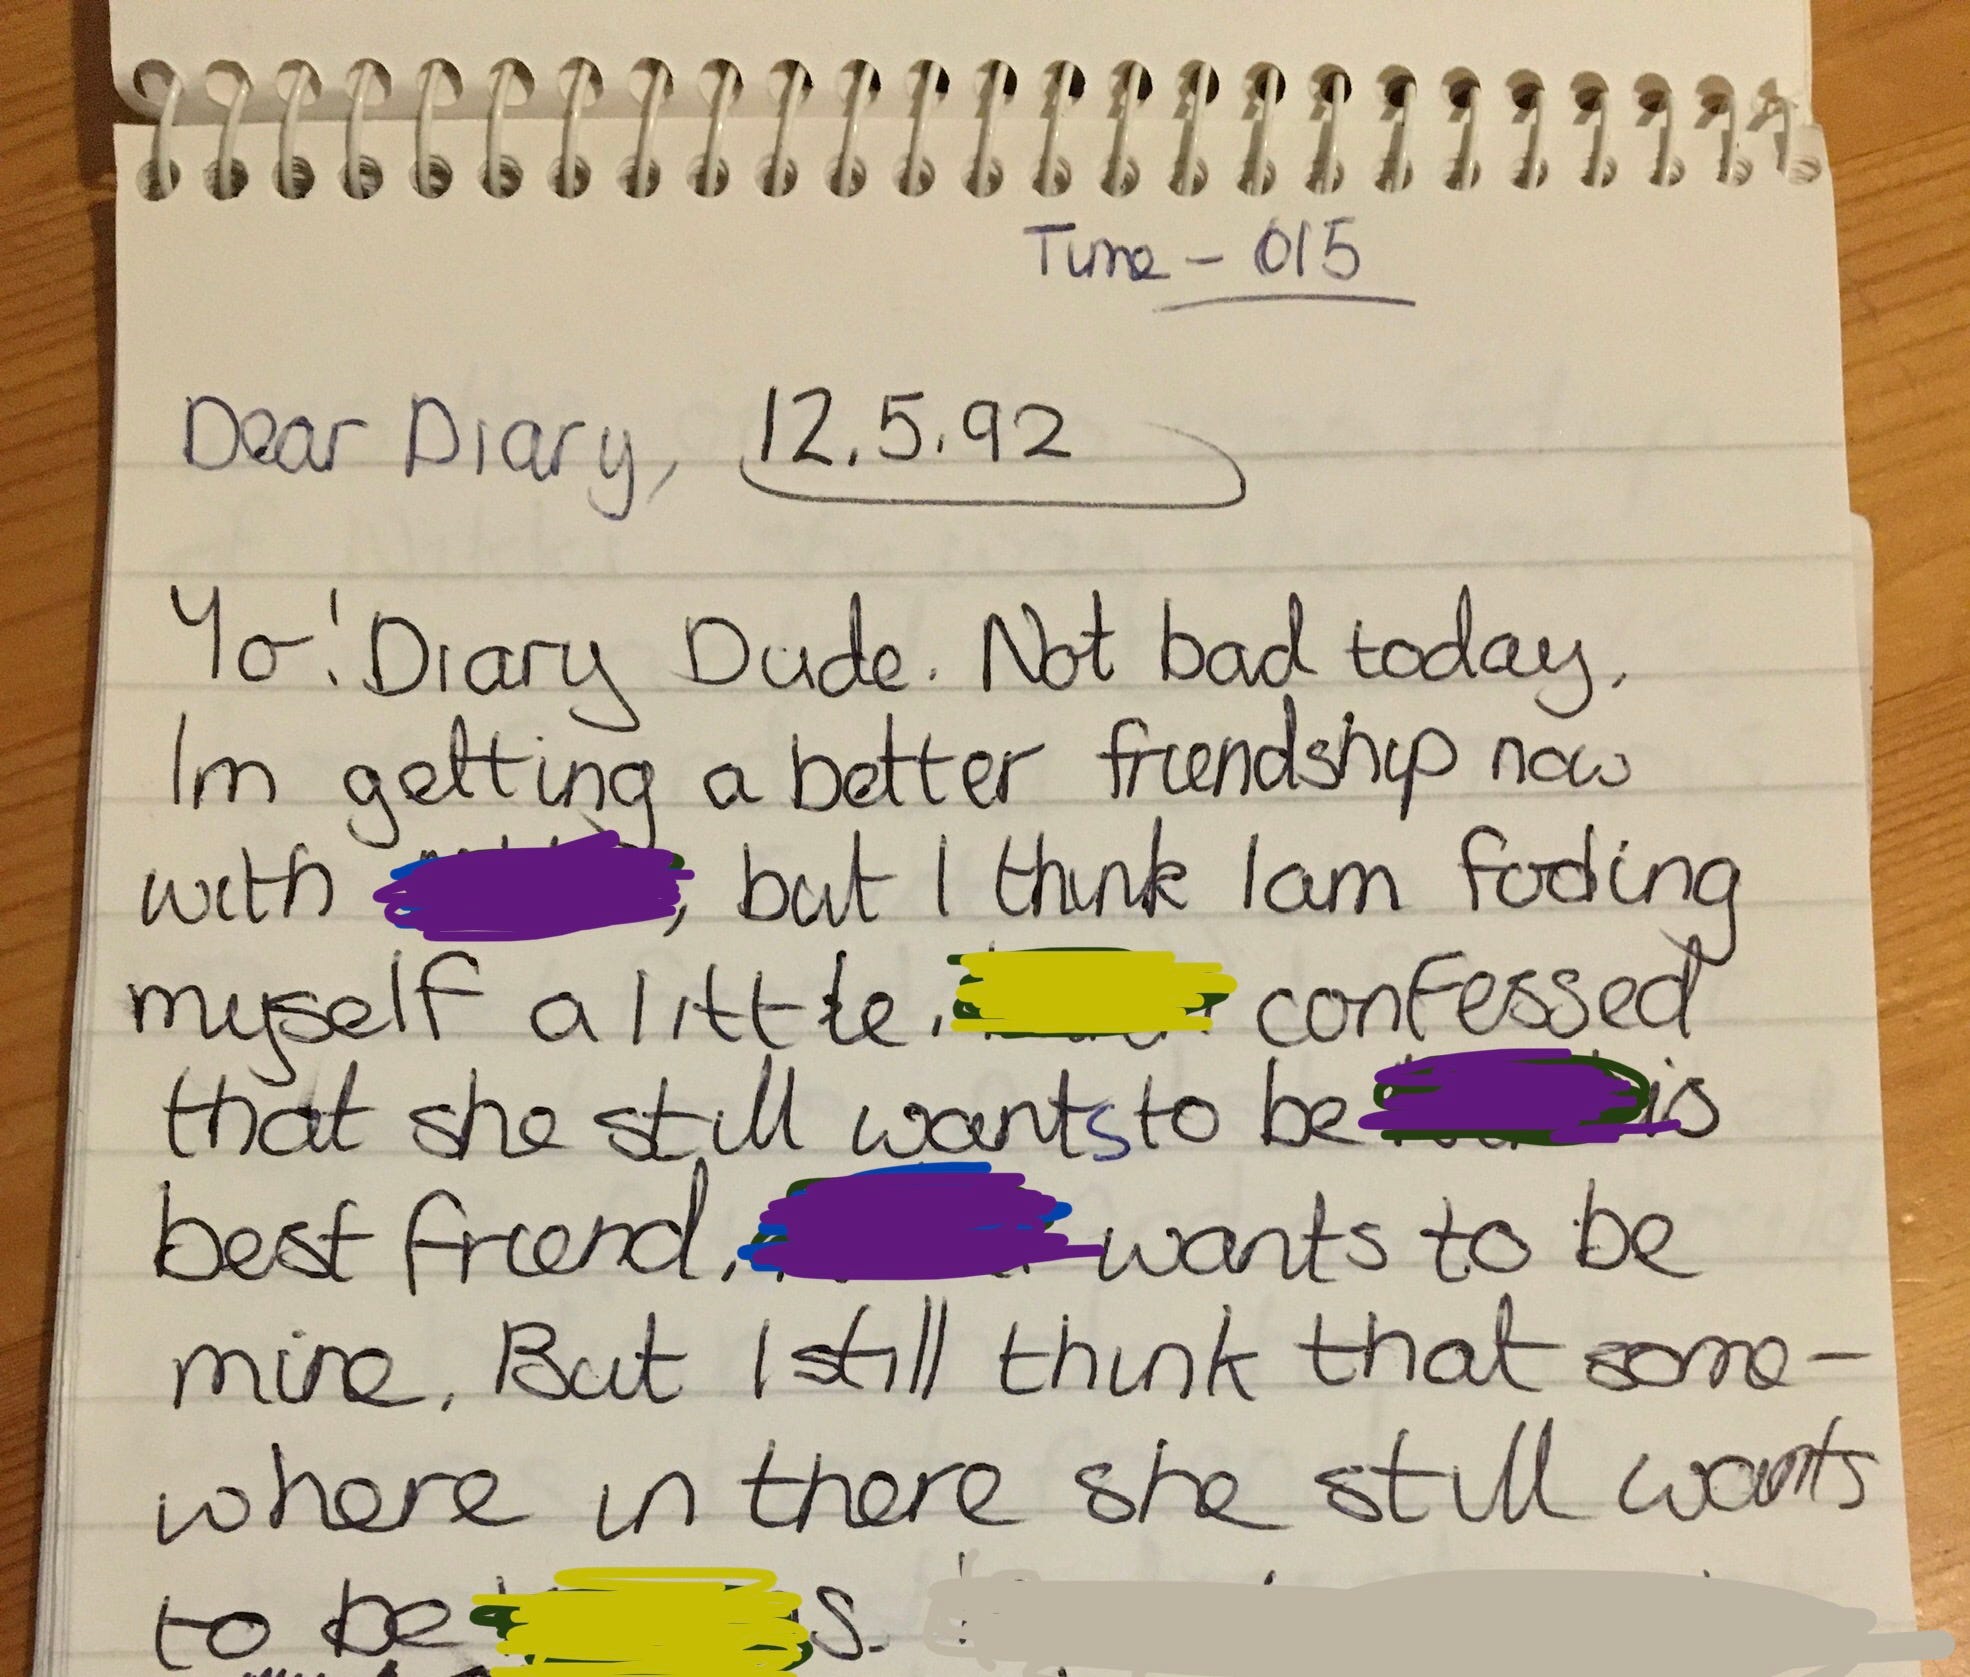 Time - 015
Dear Diary, 12.5.92
Yo! Diary Dude. Not bad today.
Im getting a better friendship now
with , but I think Iam fooling
myself a little. confessed
that she still wants to be is
best friend, wants to be
mine. But I still think that some-
where in there she still wants
to be s.